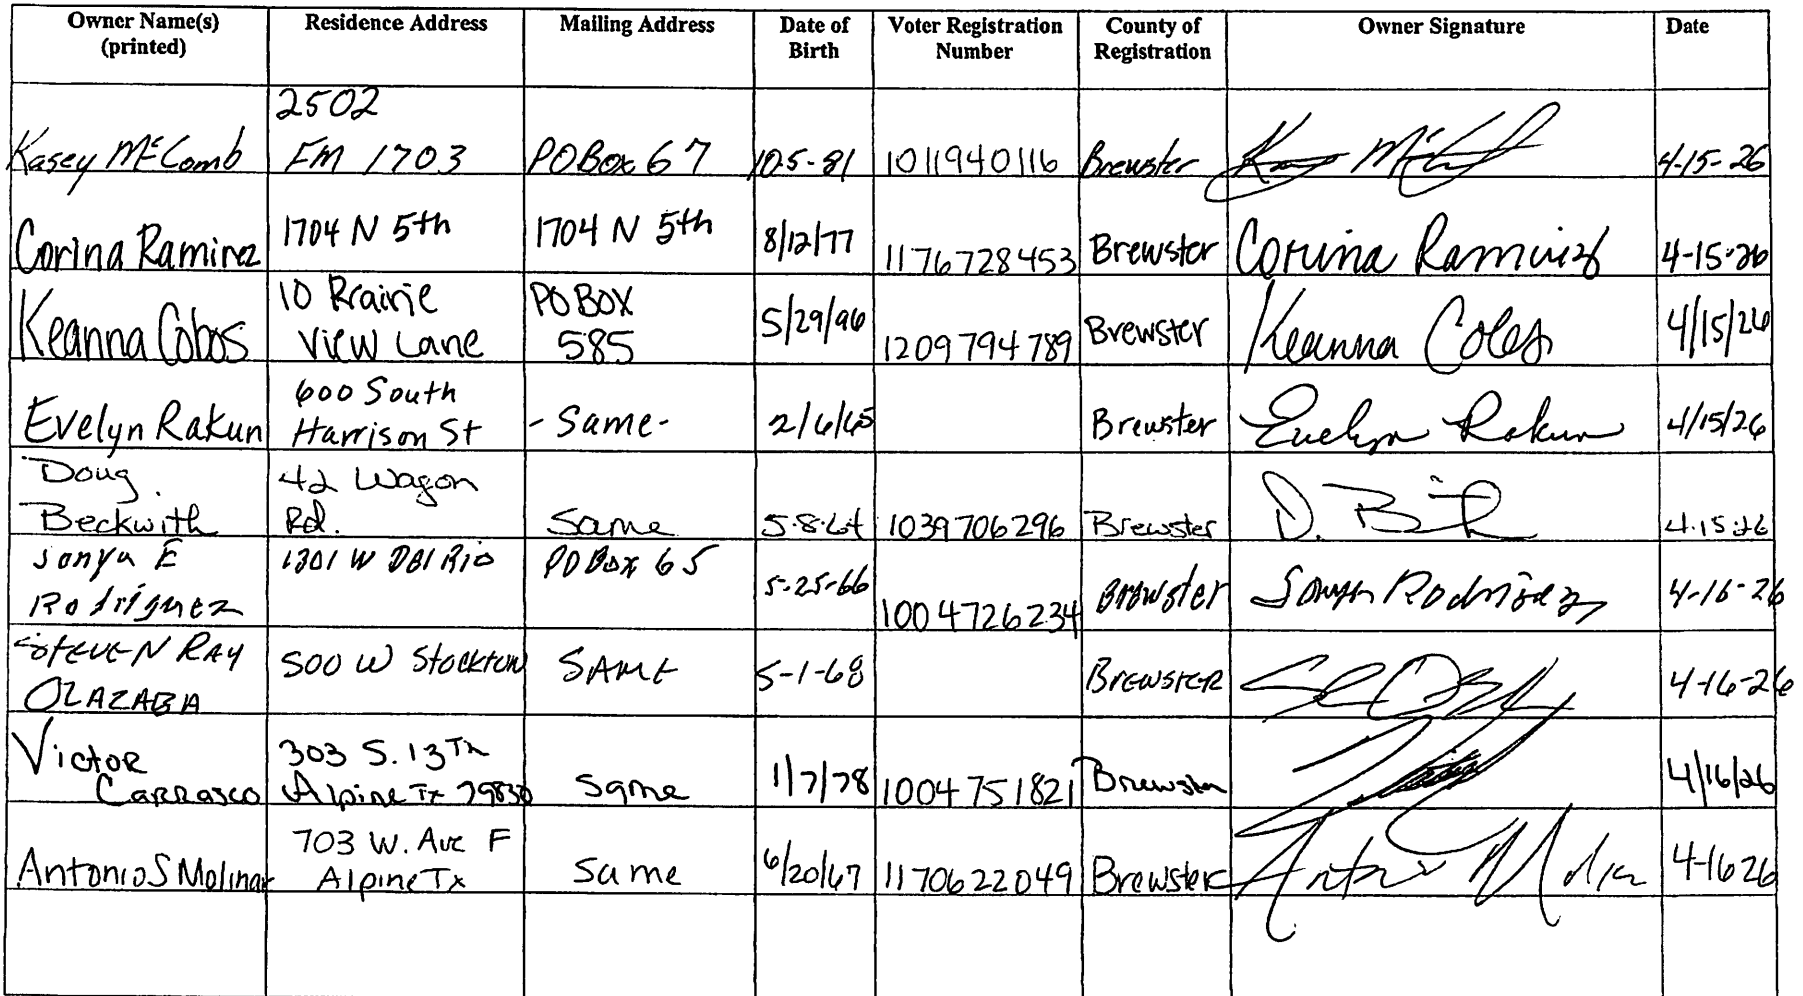 Owner Name(s) (printed) | Residence Address | Mailing Address | Date of Birth | Voter Registration Number | County of Registration | Owner Signature | Date
Kasey McComb | 2502 FM 1703 | PO Box 67 | 10-5-81 | 1011940116 | Brewster | | 4-15-26
Corina Ramirez | 1704 N 5th | 1704 N 5th | 8/12/77 | 1176728453 | Brewster | Corina Ramirez | 4-15-26
Keanna Cobos | 10 Prairie View Lane | PO BOX 585 | 5/29/96 | 1209794789 | Brewster | Keanna Cobos | 4/15/26
Evelyn Rakun | 600 South Harrison St | -Same- | 2/6/65 | | Brewster | Evelyn Rakun | 4/15/26
Doug Beckwith | 42 Wagon Rd. | Same | 5-8-64 | 1039706296 | Brewster | | 4.15.26
Sonya E Rodriguez | 1301 W Del Rio | PO Box 65 | 5-25-66 | 1004726234 | Brewster | Sonya Rodriguez | 4-16-26
STEVEN RAY OLAZABA | 500 W Stockton | SAME | 5-1-68 | | BREWSTER | | 4-16-26
Victor Carrasco | 303 S. 13Th Alpine Tx 79830 | Same | 1/7/78 | 1004751821 | Brewster | | 4/16/26
Antonio S Molinar | 703 W. Ave F Alpine Tx | Same | 6/20/67 | 1170622049 | Brewster | | 4-16 26